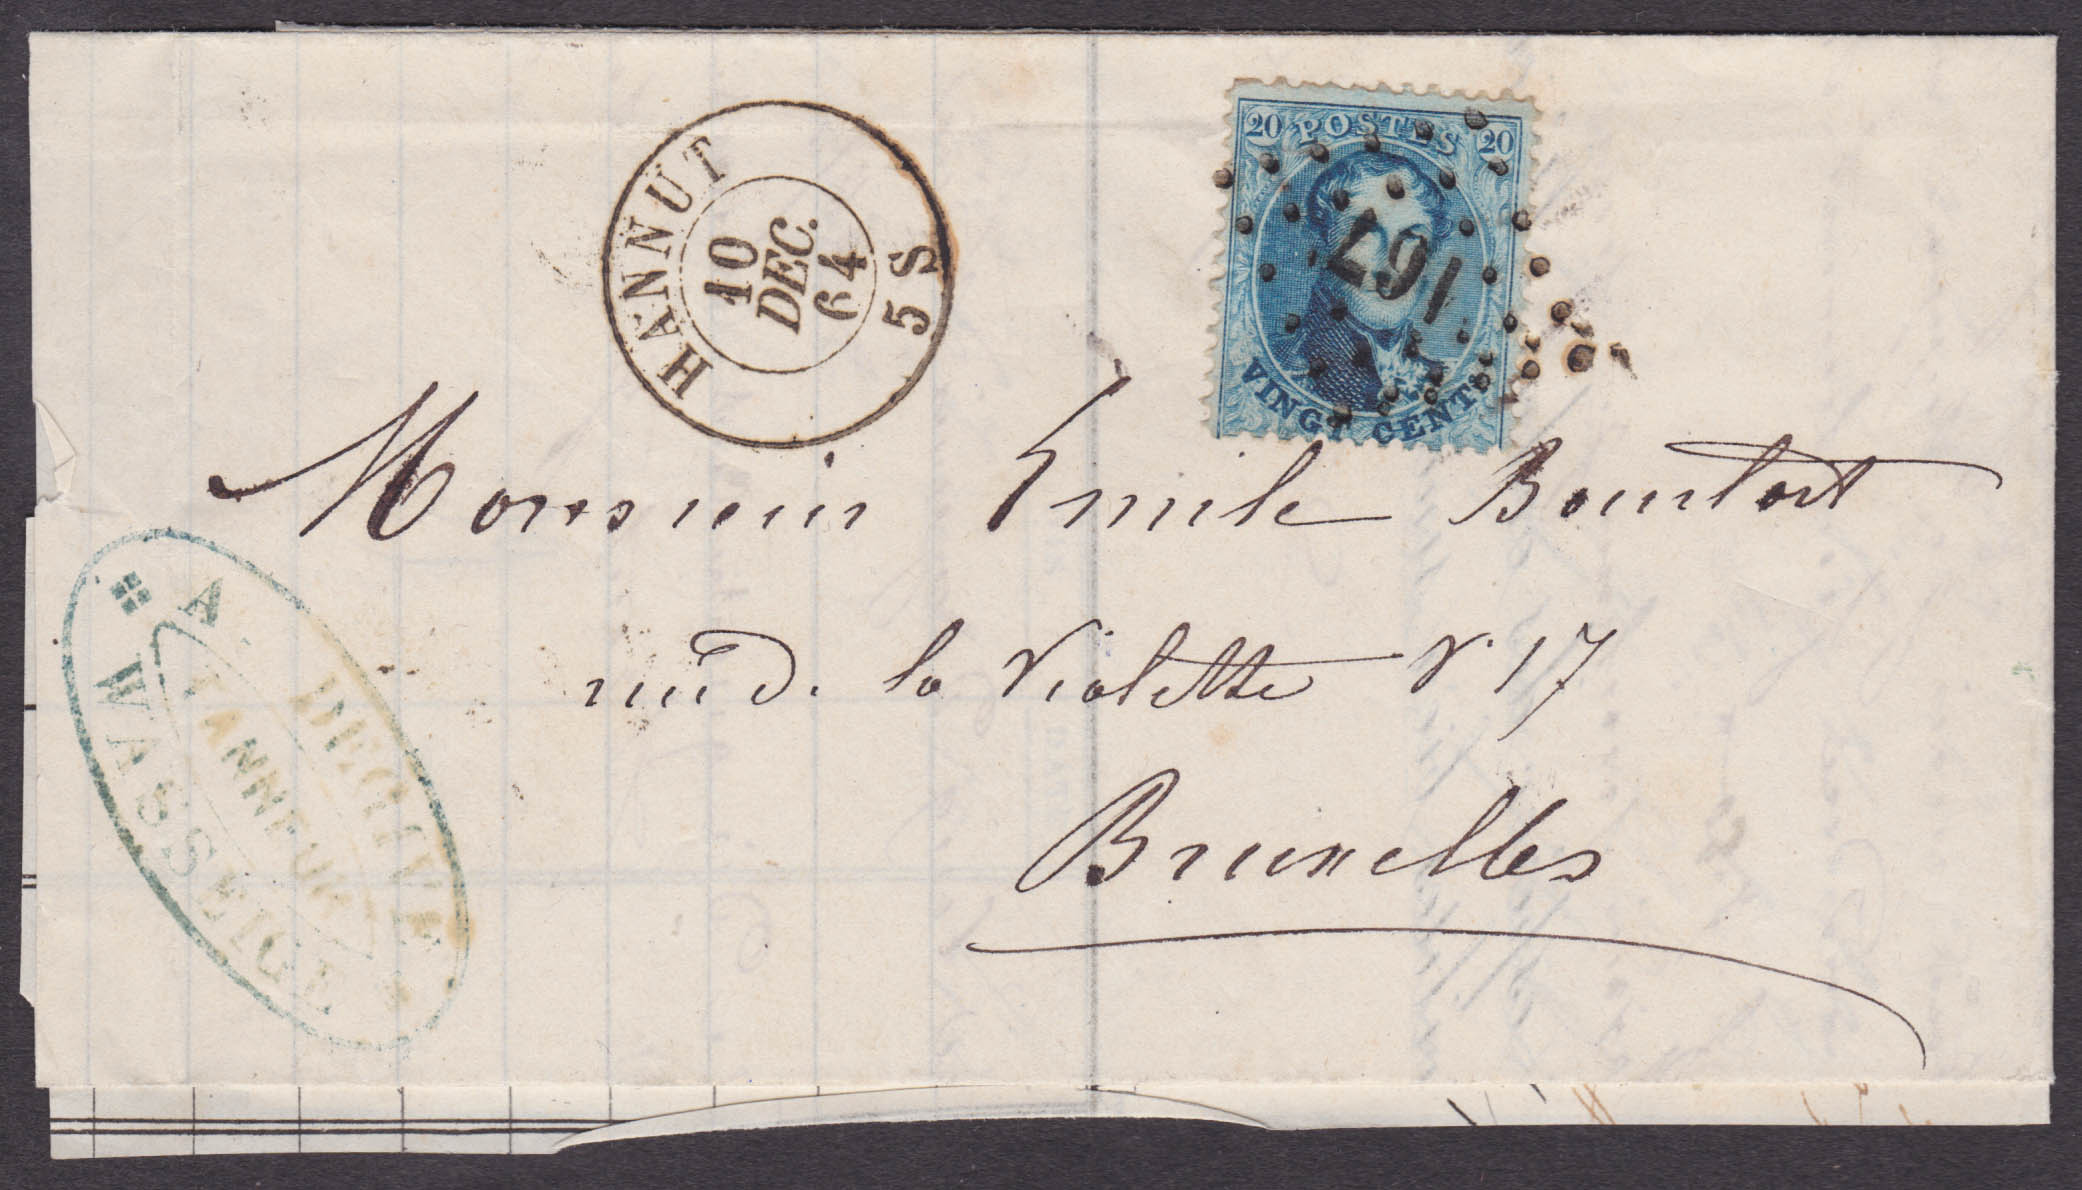 HANNUT
10
DEC.
64
5 S
20 POSTES 20
167
VINGT CENTS
Monsieur Emile
rue d. la Violette N° 17
Bruxelles
A.
TANNEUR
WASSEIGE